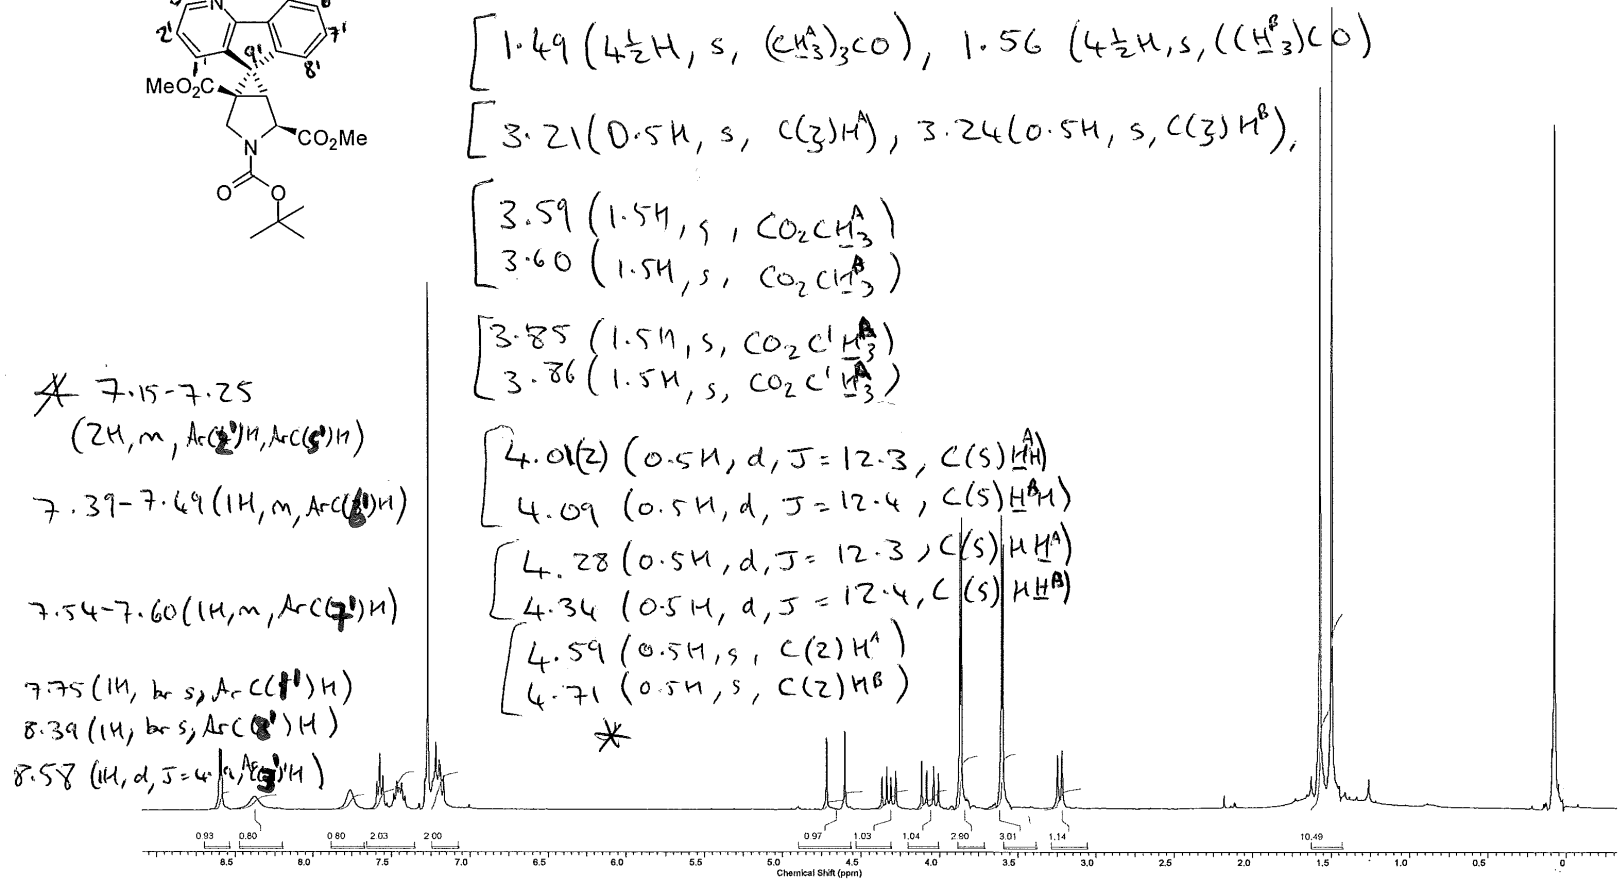 N
2'
7'
9'
1'
8'
MeO₂C
CO₂Me
N
O
O
[1.49 (4½H, s, (CH₃ᴬ)₃CO), 1.56 (4½H, s, ((Hᴮ₃)CO)
[3.21 (0.5H, s, C(3)Hᴬ), 3.24 (0.5H, s, C(3)Hᴮ),
[3.59 (1.5H, s, CO₂CHᴬ₃)
3.60 (1.5H, s, CO₂CHᴮ₃)
[3.85 (1.5H, s, CO₂C'Hᴮ₃)
3.86 (1.5H, s, CO₂C'Hᴬ₃)
[4.01(2) (0.5H, d, J = 12.3, C(5)HᴬH)
4.09 (0.5H, d, J = 12.4, C(5)HᴮH)
[4.28 (0.5H, d, J = 12.3, C(5)HHᴬ)
4.34 (0.5H, d, J = 12.4, C(5)HHᴮ)
[4.59 (0.5H, s, C(2)Hᴬ)
4.71 (0.5H, s, C(2)Hᴮ)
*
* 7.15-7.25
(2H, m, ArC(2')H, ArC(5')H)
7.39-7.49 (1H, m, ArC(6')H)
7.54-7.60 (1H, m, ArC(7')H)
7.75 (1H, br s, ArC(1')H)
8.39 (1H, br s, ArC(8')H)
8.58 (1H, d, J=
0.93 0.80 0.80 2.03 2.00 0.97 1.03 1.04 2.90 3.01 1.14 10.49
8.5 8.0 7.5 7.0 6.5 6.0 5.5 5.0 4.5 4.0 3.5 3.0 2.5 2.0 1.5 1.0 0.5 0
Chemical Shift (ppm)